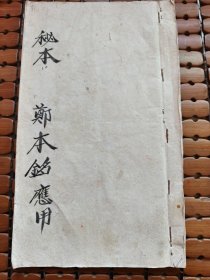 秘本
鄭本銘應用